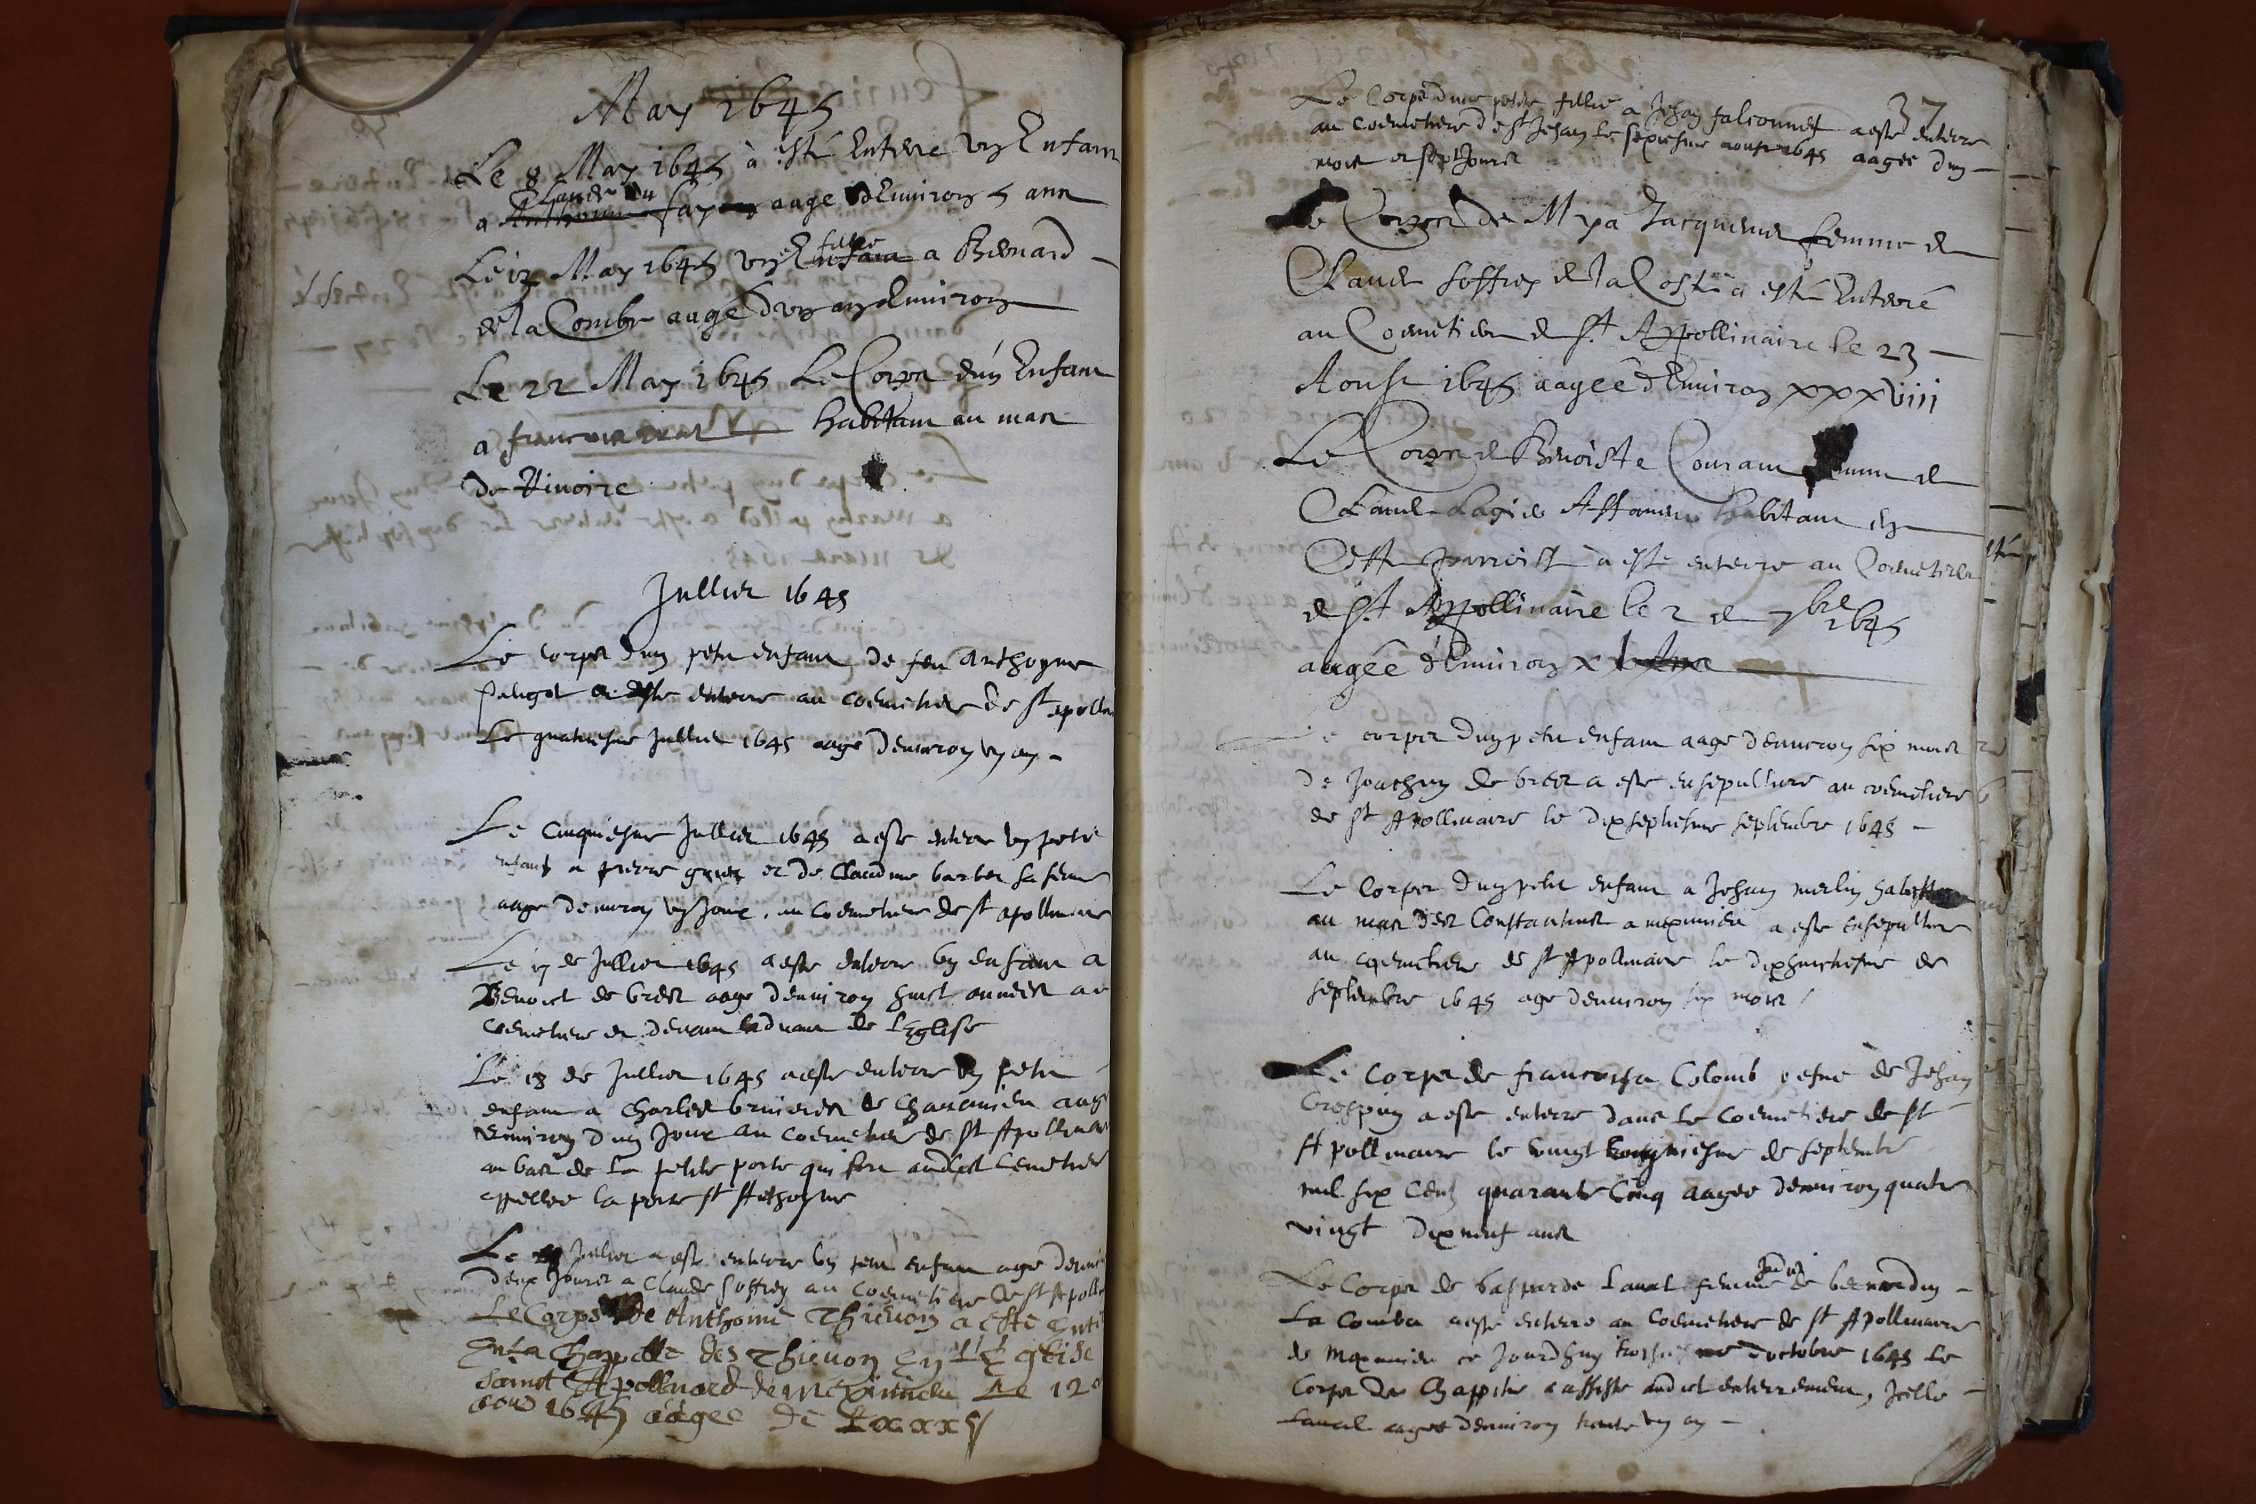 May 1645
Le 8 May 1645 à esté Enterré un Enfant
a Claude du fay aage d'Environ 5 ans
Le 12 May 1645 une fille a Bernard
de la Combe aagé d'un an Environ
Le 22 May 1645 Le Corps d'un Enfant
a francois habitant au mas
de Rivoire
Julliet 1645
Le corps dun petit enfant de feu anthoyne
paligot a este enterre au coemetiere de st apolli
Le quatriesme Julliet 1645 aage denviron un an
Le cinquiesme Julliet 1645 a este enterre un petit
enfant a pierre et de Claudine barbet sa feme
aage denviron un jour, au coemetiere de st apollinaire
Le 17 de Jullier 1645 a este enterre un enfant a
Benoict de bres aage denviron huict annees au
coemetiere et devant de leglise
Le 18 de Jullier 1645 a este enterre un petit
enfant a Charles brunieres de Charamieu aagé
denviron dun jour au coemetiere de st Apollinar
au bas de la petite porte qui sort audict cemetiere
appellee la porte st Anthoyne
Le Jullier a este enterre un petit enfant age denvi
deux jours a Claude soffrey au coemetiere de st Apolli
Le Corps de Anthoine Thievon a este Ente
En la Chappelle des Thievon En l'Eglise
sainct Apollinard de meximieu Le 12
1645 aagee de Lxxxx
37
Le corps dune petite fillie a Jehan falconnet a este enterre
au coemetiere de st Jehan le sixiesme aoust 1645 aagee dun
mois et sept jours
Le Corps de Mya Jacquemet femme de
Claude soffrey de la Coste a esté Enterré
au Coemetiere de st Appollinaire le 23
Aoust 1645 aagee d'Environ xxxviii
Le Corps de Benoiste Couraut femme de
Claude Lagier habitant en
Cette parroisse a este enterre au Coemetiere
de st Appollinaire le 2 de 7bre 1645
aagée d'Environ x
Le corps dun petit enfant aage denviron six mois
de Joachim de bres a este ensepulture au coemetiere
de st Apollinaire le dixseptiesme septembre 1645
Le Corps dun petit enfant a Jehan merlin habitant
au mas des Constantins a meximieu a este ensepulture
au coemetiere de st Apollinaire le dixhuictiesme de
septembre 1645 age denviron six mois
Le Corps de francoisa Colomb vefve de Jehan
Crespin a este enterre dans le coemetiere de st
Apollinaire le vingt de septembre
mil six Cens quarante Cinq aagee denviron quatre
vingt dix neuf ans
Le Corps de Gasparde Laval femme jadis de bernardin
La Comba a este enterre au coemetiere de st Apollinaire
de Meximieu ce jourdhuy doctobre 1645 Le
Corps du Chappitre a assiste audict enterrement, Icelle
Laval aagee denviron trente un an